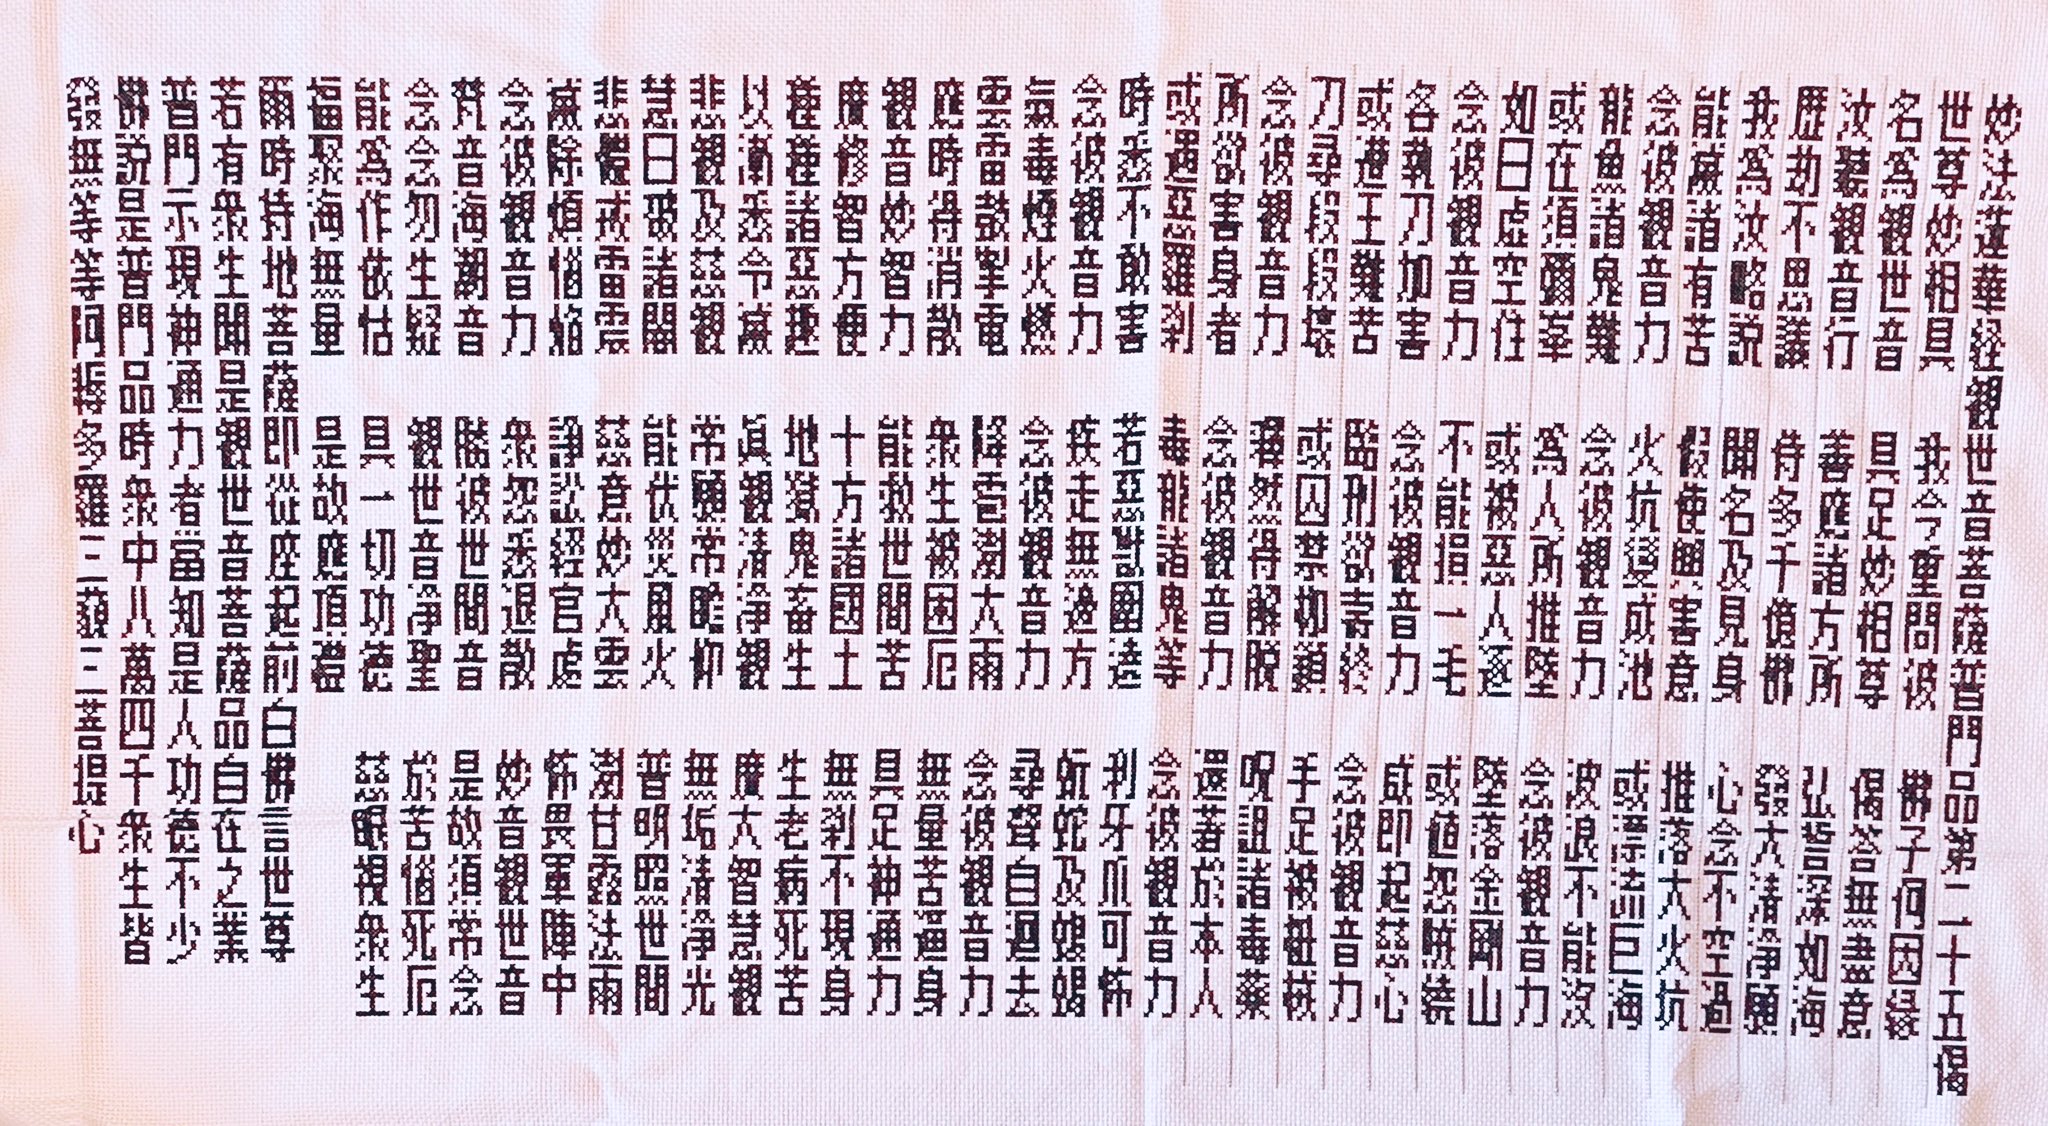 妙法蓮華経観世音菩薩普門品第二十五偈
世尊妙相具 我今重問彼 佛子何因縁
名爲観世音 具足妙相尊 偈答無盡意
汝聴観音行 善應諸方所 弘誓深如海
歴劫不思議 侍多千億佛 發大清浄願
我爲汝略説 聞名及見身 心念不空過
能滅諸有苦 假使興害意 推落大火坑
念彼観音力 火坑変成池 或漂流巨海
龍魚諸鬼難 念彼観音力 波浪不能没
或在須彌峯 爲人所推堕 念彼観音力
如日虚空住 或被惡人逐 堕落金剛山
念彼観音力 不能損一毛 或値怨賊繞
各執刀加害 念彼観音力 咸即起慈心
或遭王難苦 臨刑欲寿終 念彼観音力
刀尋段段壊 或囚禁枷鎖 手足被杻械
念彼観音力 釋然得解脱 呪詛諸毒薬
所欲害身者 念彼観音力 還著於本人
或遇惡羅刹 毒龍諸鬼等 念彼観音力
時悉不敢害 若惡獣圍遶 利牙爪可怖
念彼観音力 疾走無邊方 蚖蛇及蝮蝎
氣毒煙火燃 念彼観音力 尋聲自迴去
雲雷鼓掣電 降雹澍大雨 念彼観音力
應時得消散 衆生被困厄 無量苦逼身
観音妙智力 能救世間苦 具足神通力
廣修智方便 十方諸國土 無刹不現身
種種諸惡趣 地獄鬼畜生 生老病死苦
以漸悉令滅 眞観清浄観 廣大智慧観
悲観及慈観 常願常瞻仰 無垢清浄光
慧日破諸闇 能伏災風火 普明照世間
悲體戒雷震 慈意妙大雲 澍甘露法雨
滅除煩惱焰 諍訟経官處 怖畏軍陣中
念彼観音力 衆怨悉退散 妙音観世音
梵音海潮音 勝彼世間音 是故須常念
念念勿生疑 観世音浄聖 於苦惱死厄
能爲作依怙 具一切功徳 慈眼視衆生
福聚海無量 是故應頂禮
爾時持地菩薩即従座起前白佛言世尊
若有衆生聞是観世音菩薩品自在之業
普門示現神通力者當知是人功徳不少
佛説是普門品時衆中八萬四千衆生皆
發無等等阿耨多羅三藐三菩提心